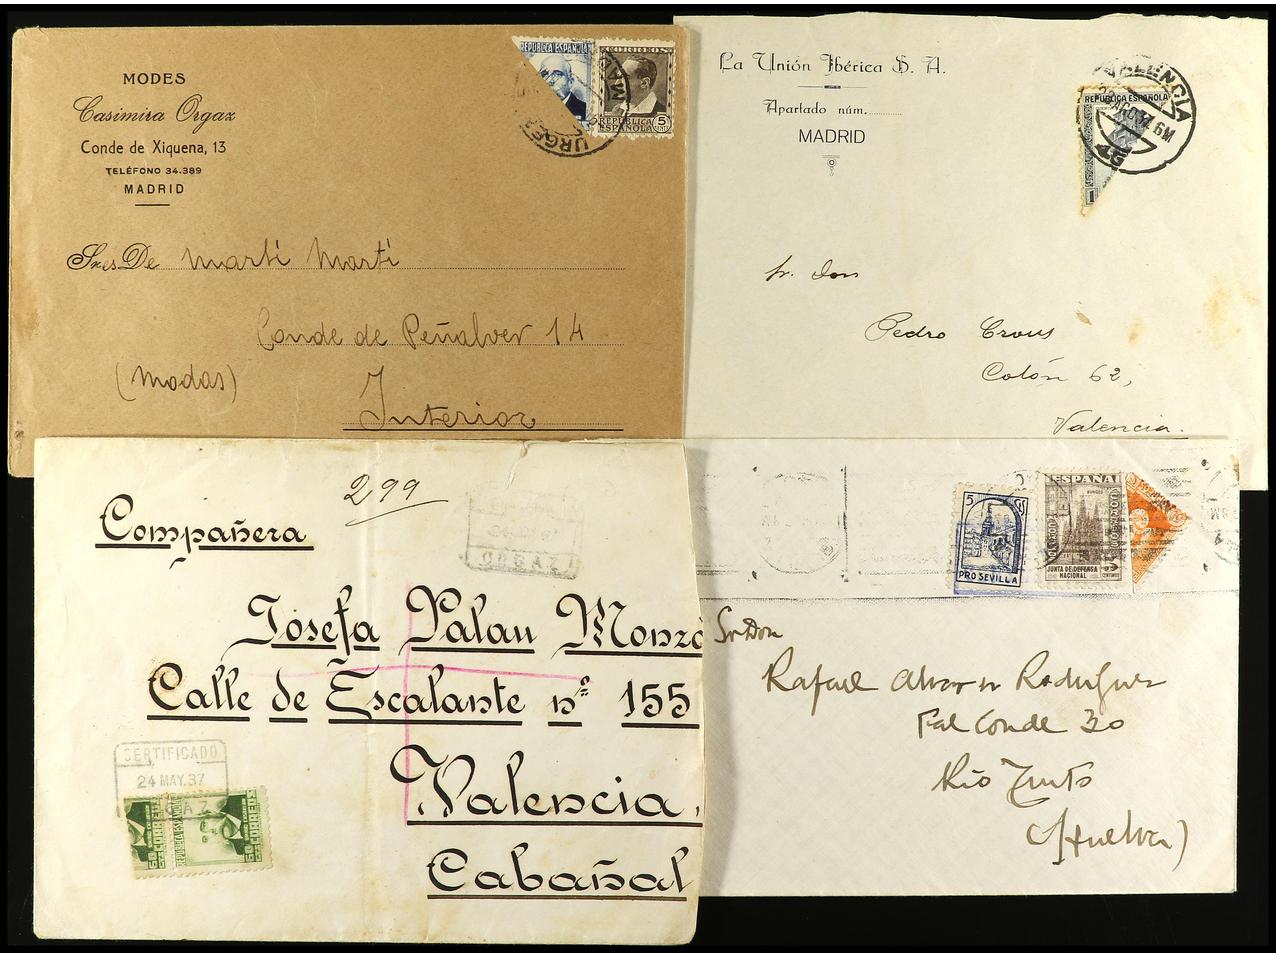 MODES
Casimira Orgaz
Conde de Xiquena, 13
TELÉFONO 34.389
MADRID
REPUBLICA ESPAÑOLA
CORREOS
REPUBLICA ESPAÑOLA 5 CTS
Sres De Martí Martí
Conde de Peñalver 14
(Modas)
Interior
La Unión Ibérica S. A.
Apartado núm.
MADRID
VALENCIA
REPUBLICA ESPAÑOLA
1
6M
Sr. Don
Pedro Crous
Colón 62,
Valencia.
299
Compañera
ORGAZ
Josefa Palau Monzo
Calle de Escalante nº 155
Valencia,
Cabañal
CERTIFICADO
24 MAY. 37
REPUBLICA ESPAÑOLA
CORREOS
5
PRO SEVILLA
ESPAÑA
BURGOS
JUNTA DE DEFENSA
NACIONAL
CENTIMOS
Sr Don
Rafael Alvarez Rodriguez
Fal Conde 30
Rio Tinto
(Huelva)